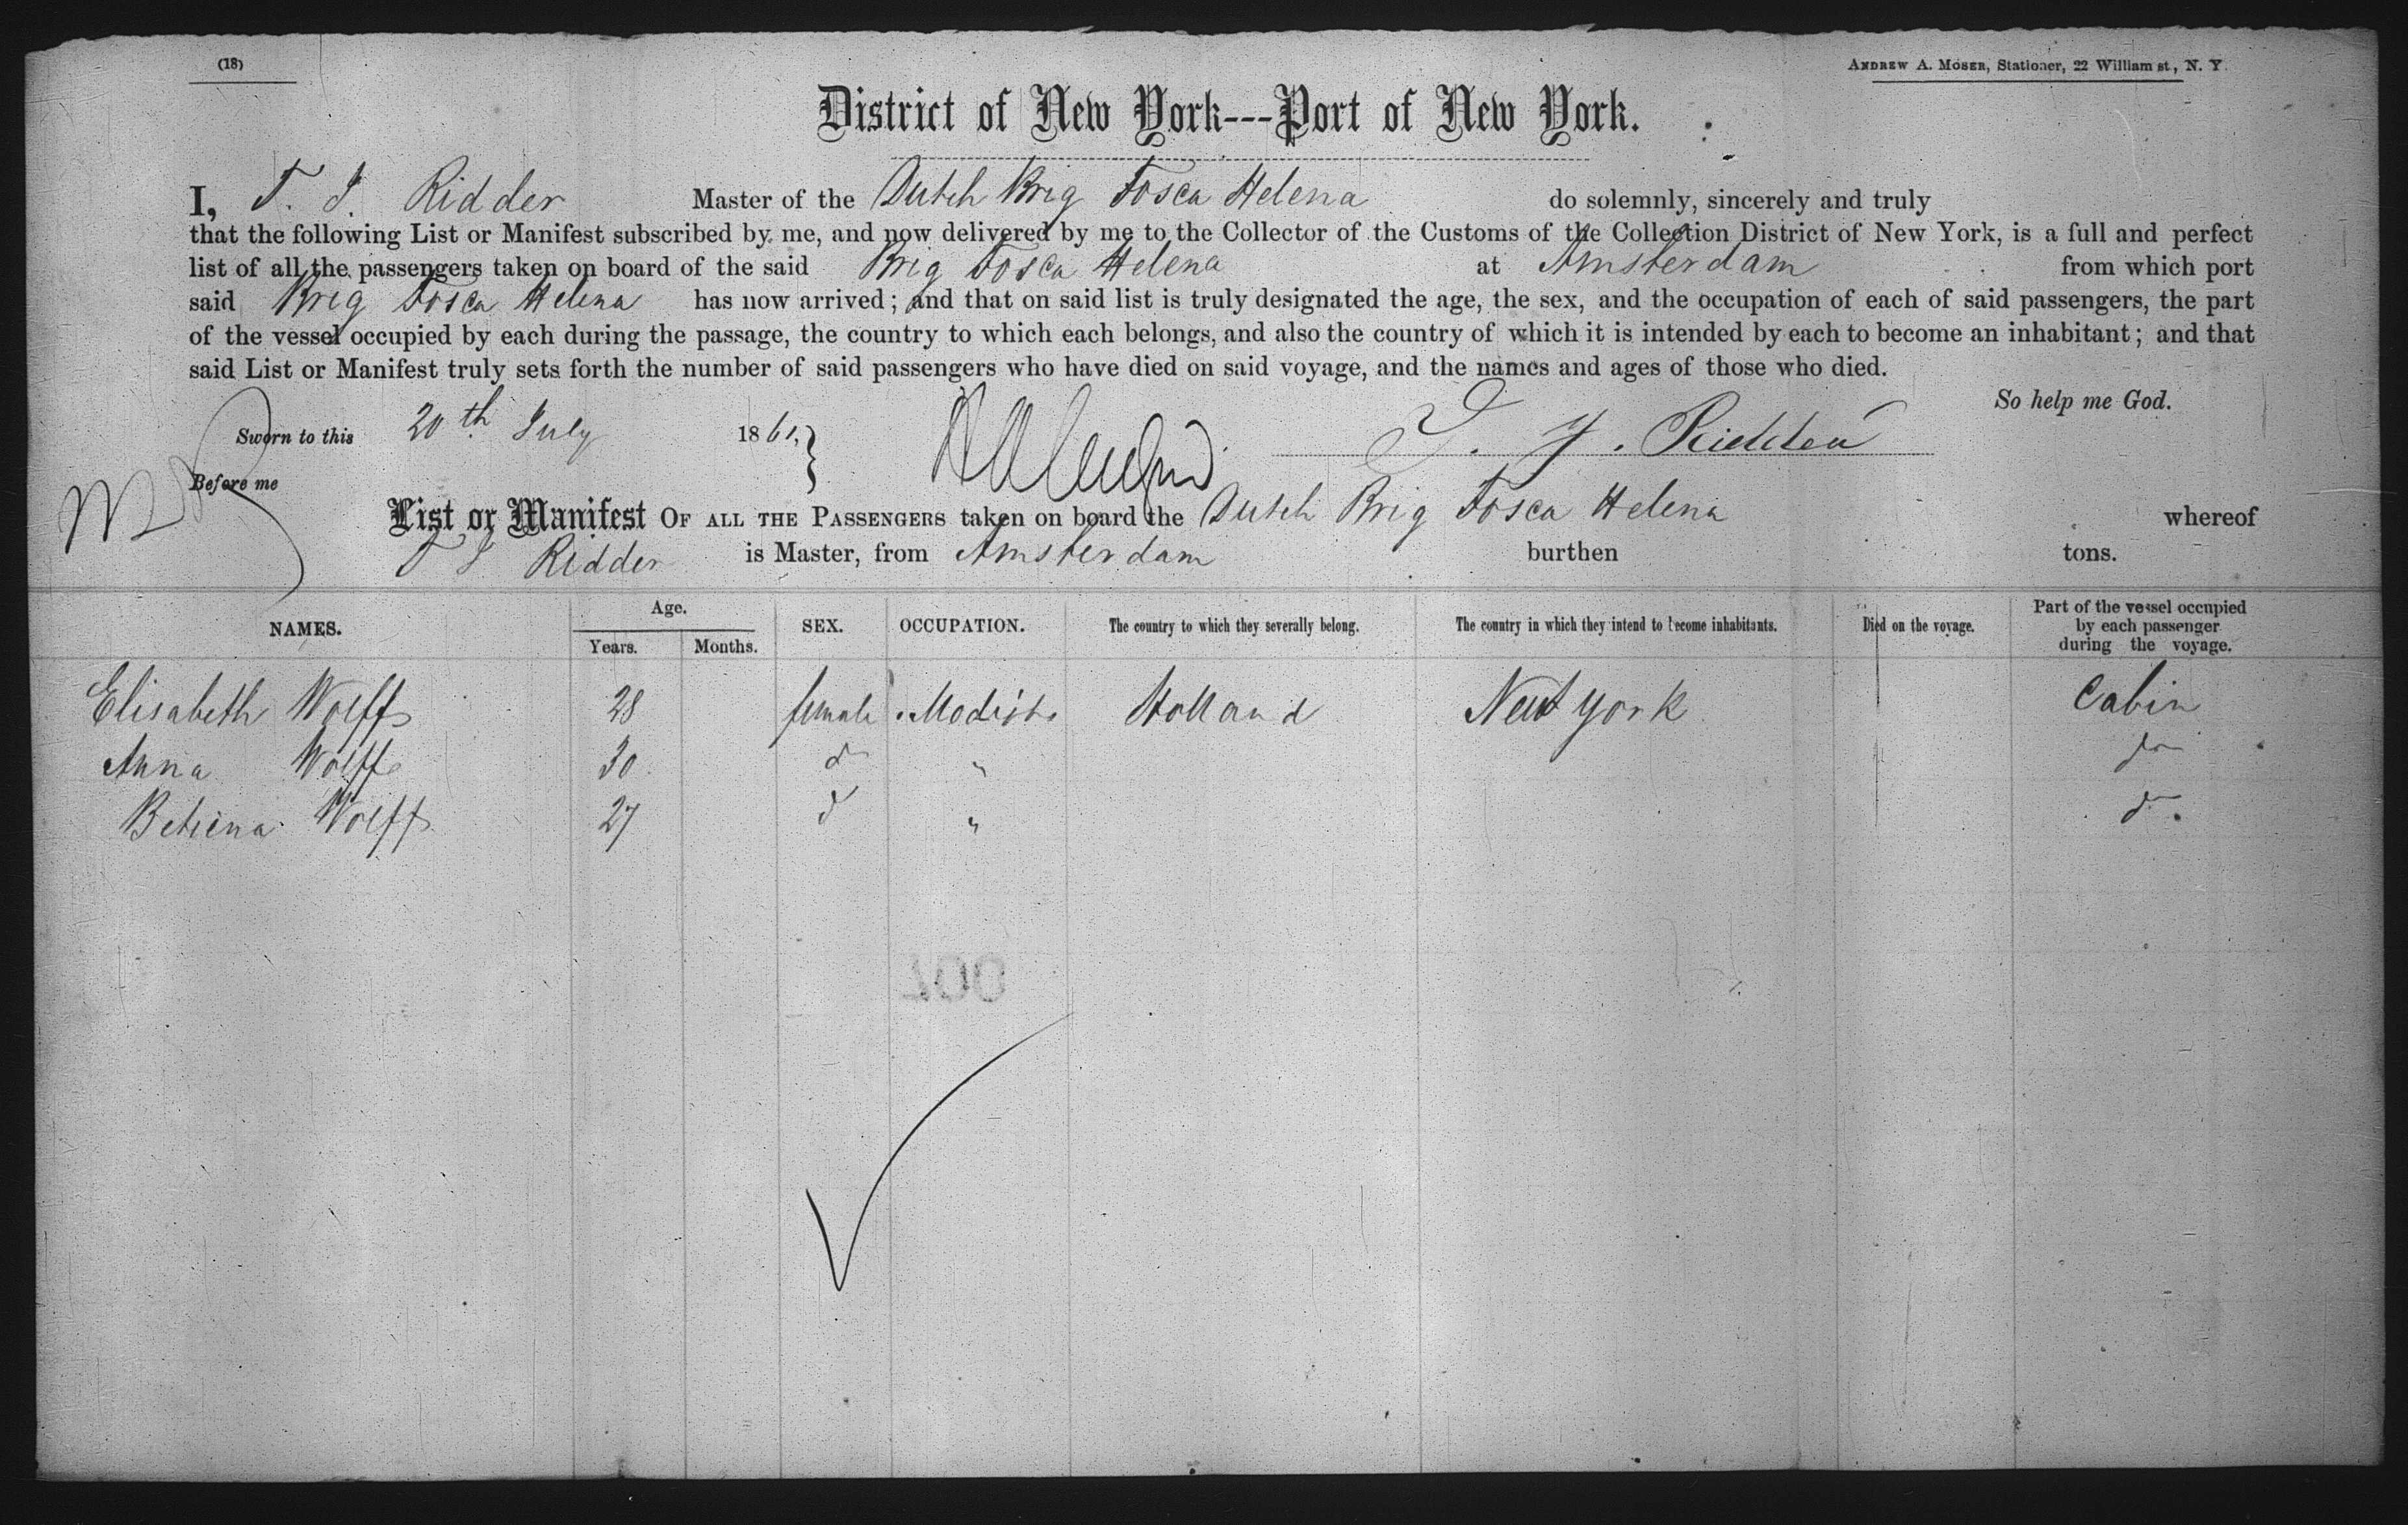 (18)
ANDREW A. MOSER, Stationer, 22 William st., N. Y.
District of New York---Port of New York.
I, T. J. Ridder Master of the Dutch Brig Fosca Helena do solemnly, sincerely and truly
that the following List or Manifest subscribed by me, and now delivered by me to the Collector of the Customs of the Collection District of New York, is a full and perfect
list of all the passengers taken on board of the said Brig Fosca Helena at Amsterdam from which port
said Brig Fosca Helena has now arrived; and that on said list is truly designated the age, the sex, and the occupation of each of said passengers, the part
of the vessel occupied by each during the passage, the country to which each belongs, and also the country of which it is intended by each to become an inhabitant; and that
said List or Manifest truly sets forth the number of said passengers who have died on said voyage, and the names and ages of those who died.
So help me God.
Sworn to this 20th July 1861,
Before me
List or Manifest OF ALL THE PASSENGERS taken on board the Dutch Brig Fosca Helena whereof
T J Ridder is Master, from Amsterdam burthen tons.
NAMES. Age. Years. Months. SEX. OCCUPATION. The country to which they severally belong. The country in which they intend to become inhabitants. Died on the voyage. Part of the vessel occupied by each passenger during the voyage.
Elisabeth Wolff 28 female Modiste Holland New York Cabin
Anna Wolff 30 do " do
Betsena Wolff 27 do " do